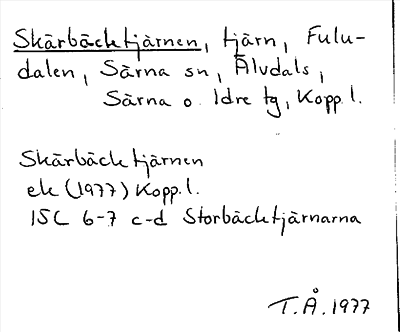 Skärbäcktjärnen, tjärn, Fulu-
dalen, Särna sn, Älvdals,
Särna o. Idre tg, Kopp.l.
Skärbäcktjärnen
ek (1977) Kopp.l.
15C 6-7 c-d Storbäcktjärnarna
T.Å. 1977